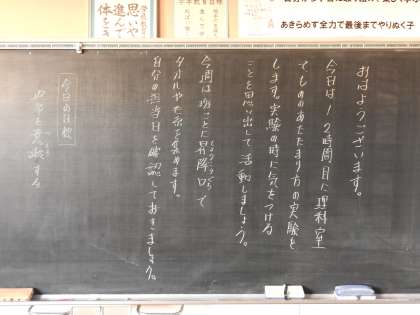 あきらめず全力で最後までやりぬく子
思いや
進んで
体をき
おはようございます。
今日は1、2時間目に理科室
でもののあたたまり方の実験を
します。実験の時に気をつける
ことを思い出して活動しましょう。
今週は班ごとに昇降口で
タオルや毛糸を集めます。
自分の担当日を確認しておきましょう。
今日の目標
意識する